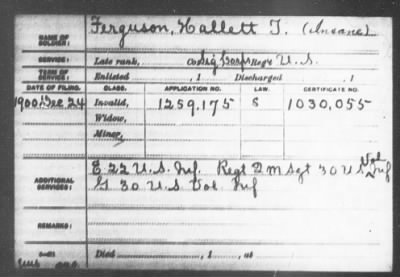 NAME OF SOLDIER: Ferguson, Hallett T. (Insane)
SERVICE: Late rank, Co Sig Corps Reg't U. S.
TERM OF SERVICE: Enlisted , 1 Discharged , 1
DATE OF FILING. CLASS. APPLICATION NO. LAW. CERTIFICATE NO.
1900 Dec 24 Invalid, 1259,175 S 1030,055
Widow,
Minor,
ADDITIONAL SERVICES: E 22 U.S. Inf. Regt Q M Sgt 30 U S Vol Inf
G 30 U.S. Vol Inf
REMARKS:
Died , 1 , at